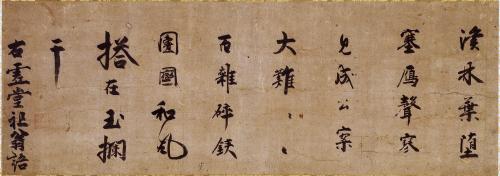 溪林葉墮
塞鴈聲寒
見成公案
大難〻〻
百雜碎鉄
團圞和風
搭在玉欄
干
右虚堂祖翁語